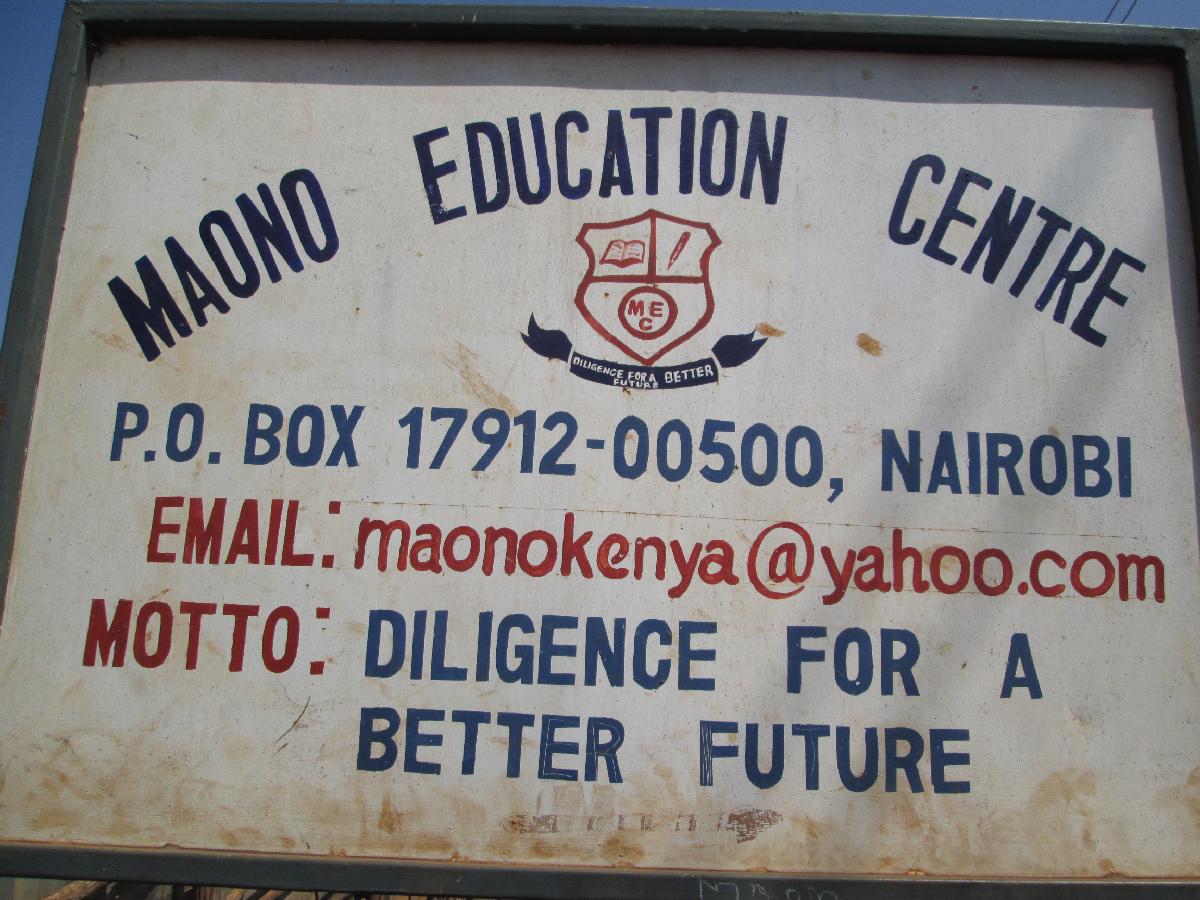 MAONO EDUCATION CENTRE
M E
C
DILIGENCE FOR A BETTER
FUTURE
P.O. BOX 17912-00500, NAIROBI
EMAIL: maonokenya@yahoo.com
MOTTO: DILIGENCE FOR A
BETTER FUTURE